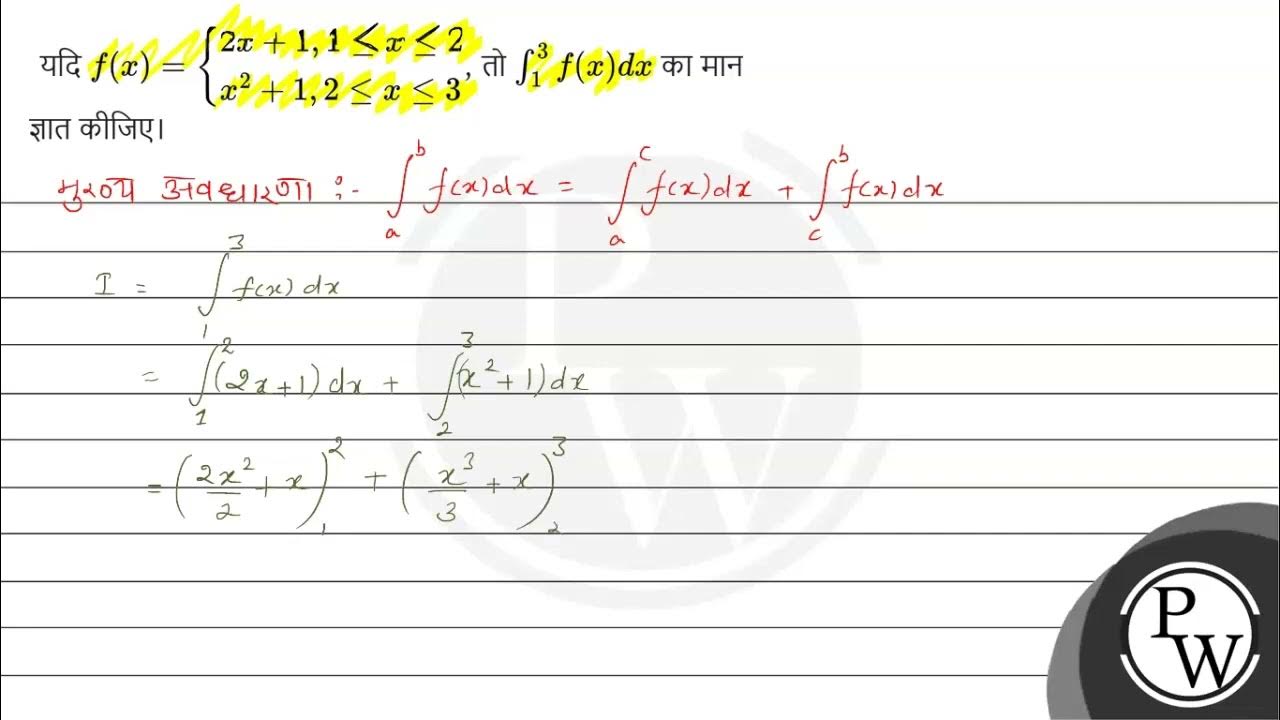 यदि f(x) = {2x + 1, 1 ≤ x ≤ 2
x² + 1, 2 ≤ x ≤ 3, तो ∫₁³ f(x)dx का मान
ज्ञात कीजिए।
मुख्य अवधारणा :- ∫ₐᵇ f(x) dx = ∫ₐᶜ f(x) dx + ∫꜀ᵇ f(x) dx
I = ∫₁³ f(x) dx
= ∫₁² (2x+1) dx + ∫₂³ (x²+1) dx
= (2x²/2 + x)₁² + (x³/3 + x)₂³
PW
PW